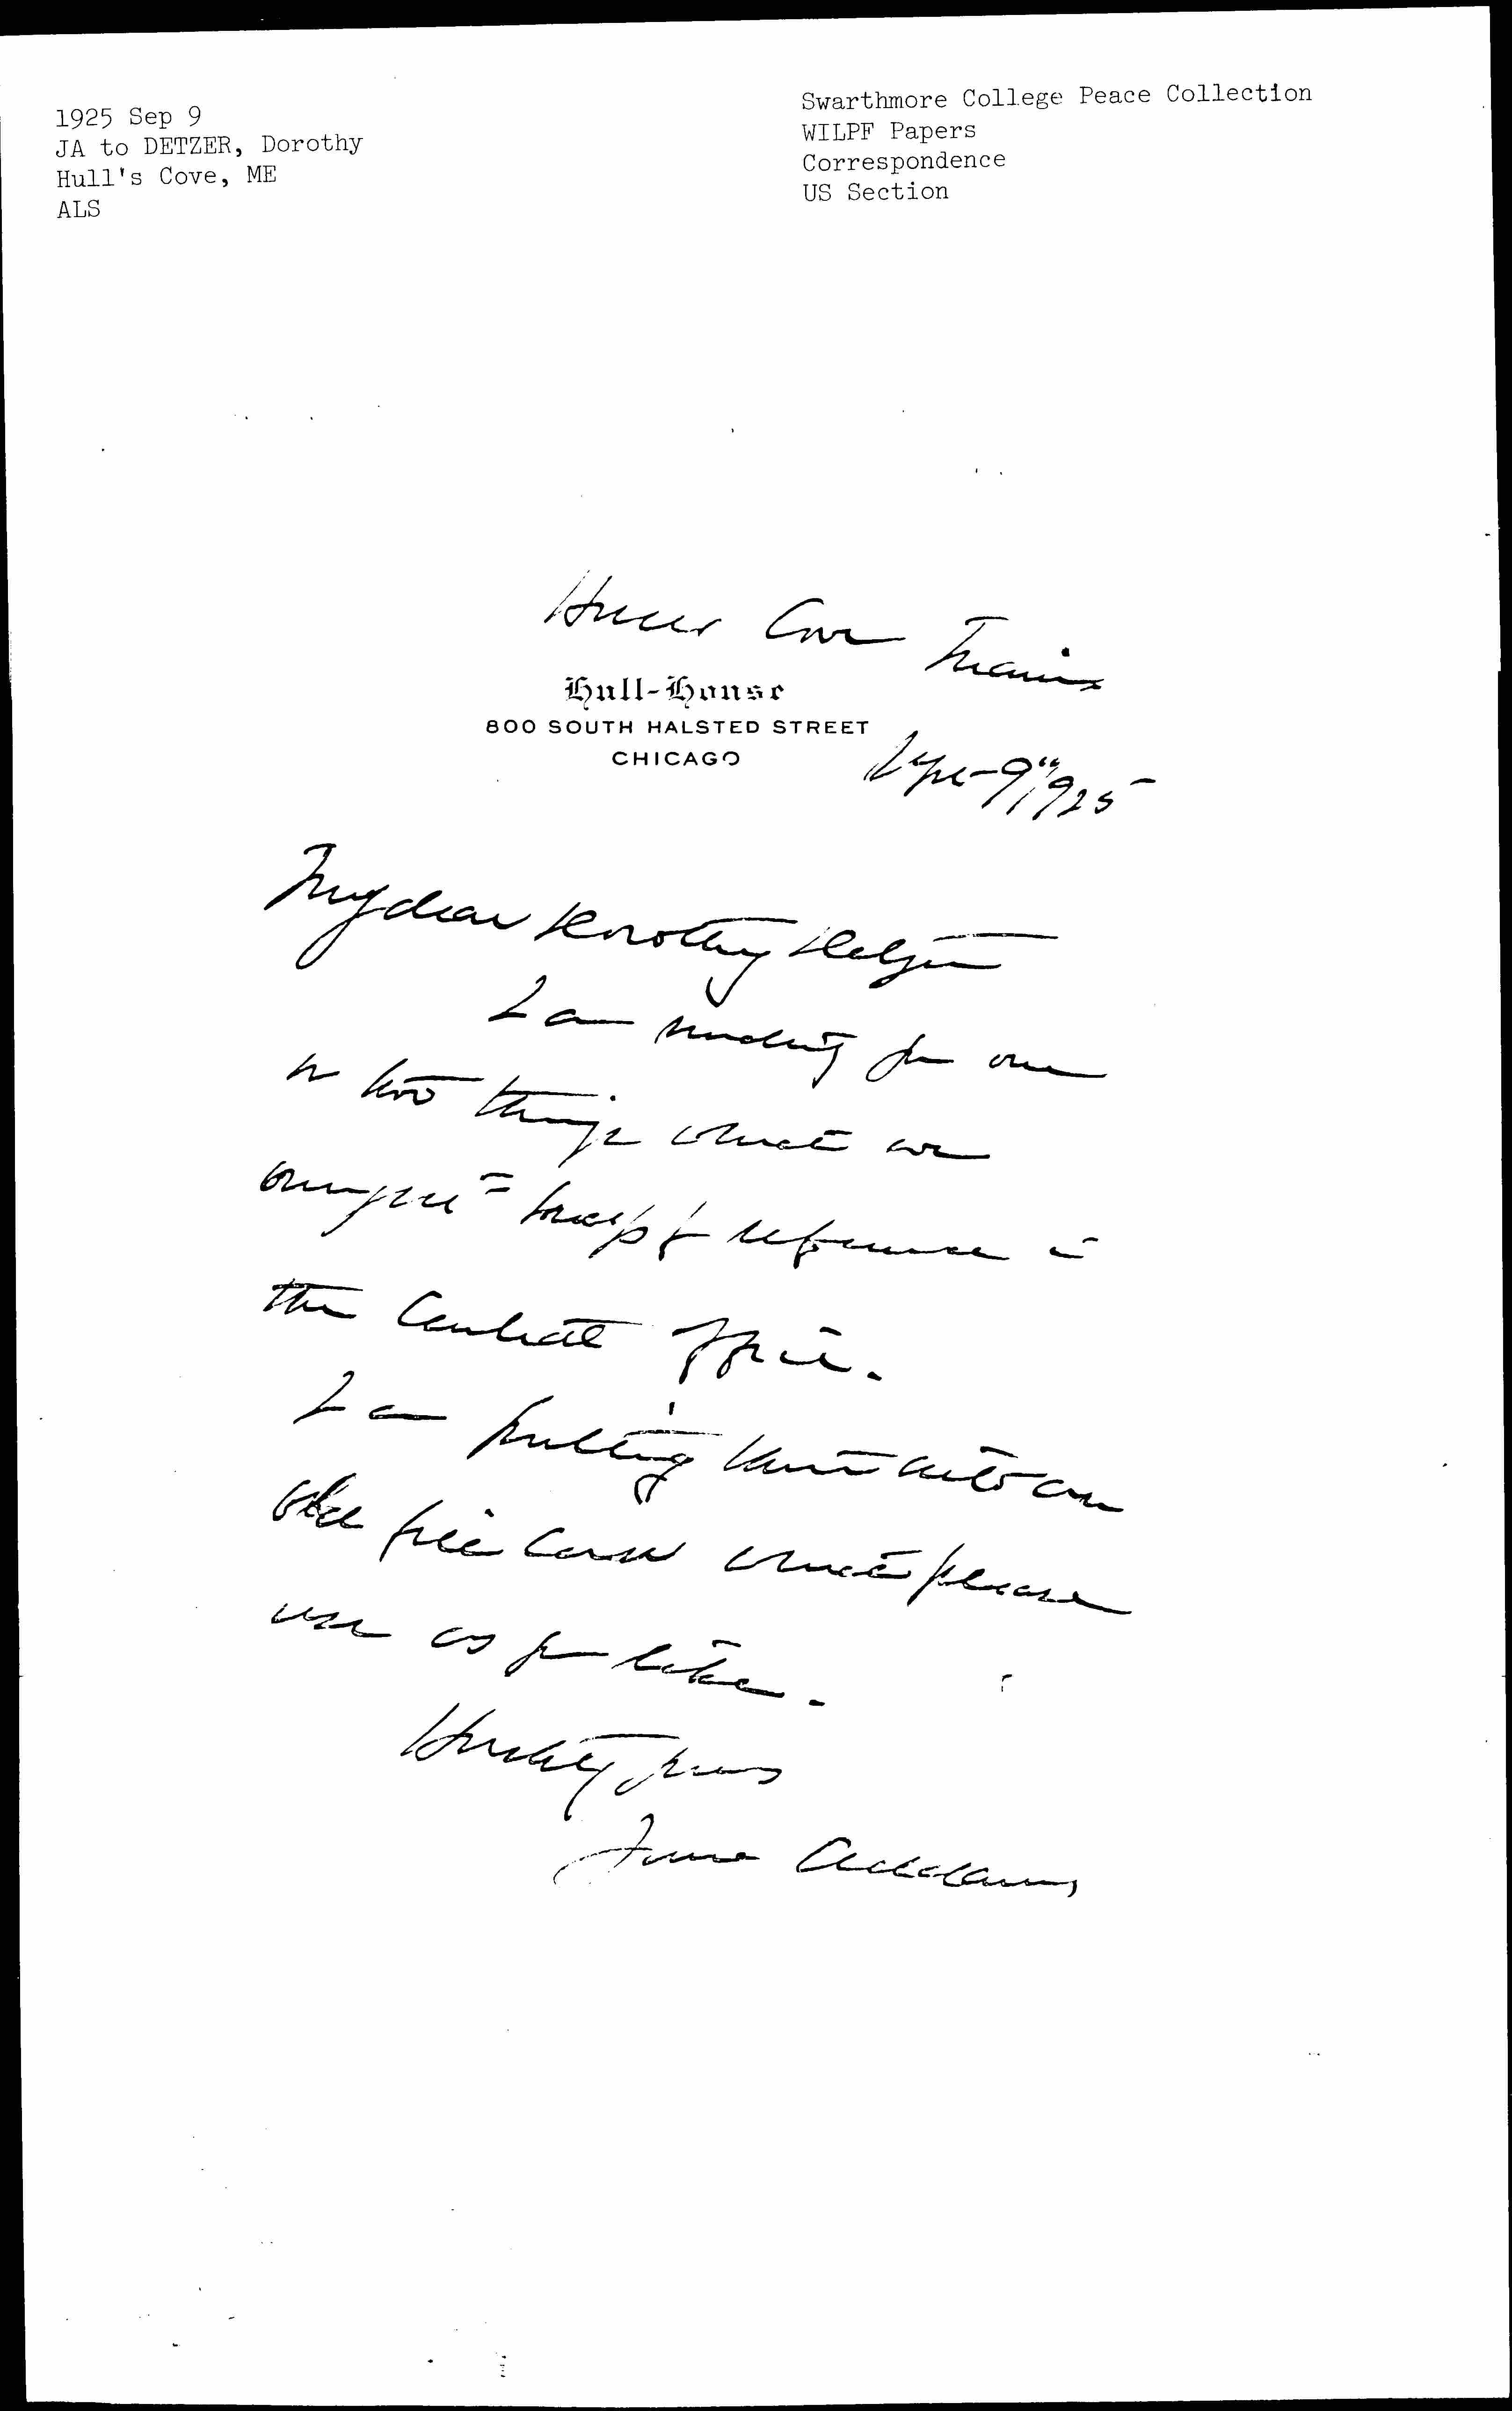 1925 Sep 9
JA to DETZER, Dorothy
Hull's Cove, ME
ALS
Swarthmore College Peace Collection
WILPF Papers
Correspondence
US Section
Hulls Cove Maine
Hull-House
800 SOUTH HALSTED STREET
CHICAGO
Sept 9" 1925
My dear Dorothy Detzer
I am sending you one
or two things which we
to keep for reference in
the Central Office.
I am putting them into an
old file cover which please
use as you like.
Hastily yours
Jane Addams